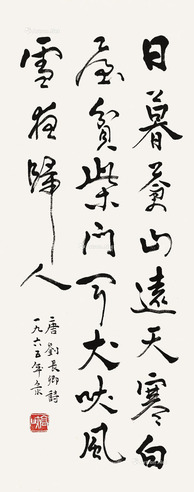 日暮蒼山遠天寒白
屋貧柴門聞犬吠風
雪夜歸人
唐劉長卿詩
一九六五年